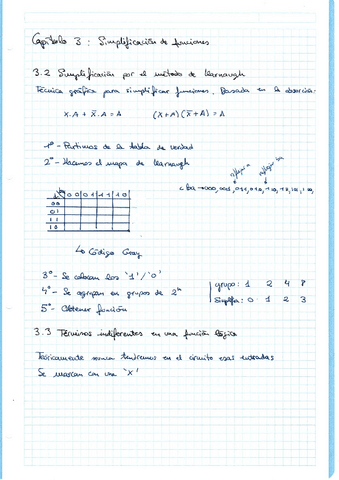 Capítulo 3: Simplificación de funciones
3.2 Simplificación por el método de Karnaugh
Técnica gráfica para simplificar funciones. Basada en la absorción:
X.A + X̅.A = A (X+A)(X̅+A) = A
1º- Partimos de la tabla de verdad
2º- Hacemos el mapa de Karnaugh
cba→000, 001, 011, 010, 110, 111, 101, 100,
00 01 11 10
00
01
11
10
↳ Código Gray
3º- Se colocan los '1'/'0'
4º- Se agrupan en grupos de 2ⁿ
grupo: 1 2 4 8
Simplifica: 0 1 2 3
5º- Obtener función
3.3 Términos indiferentes en una función lógica
Teóricamente nunca tendremos en el circuito esas entradas
Se marcan con una 'X'